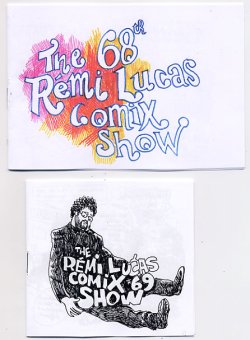 The 68th
Rémi Lucas
Comix
Show
THE
RÉMI LUCAS
COMIX 69
SHOW